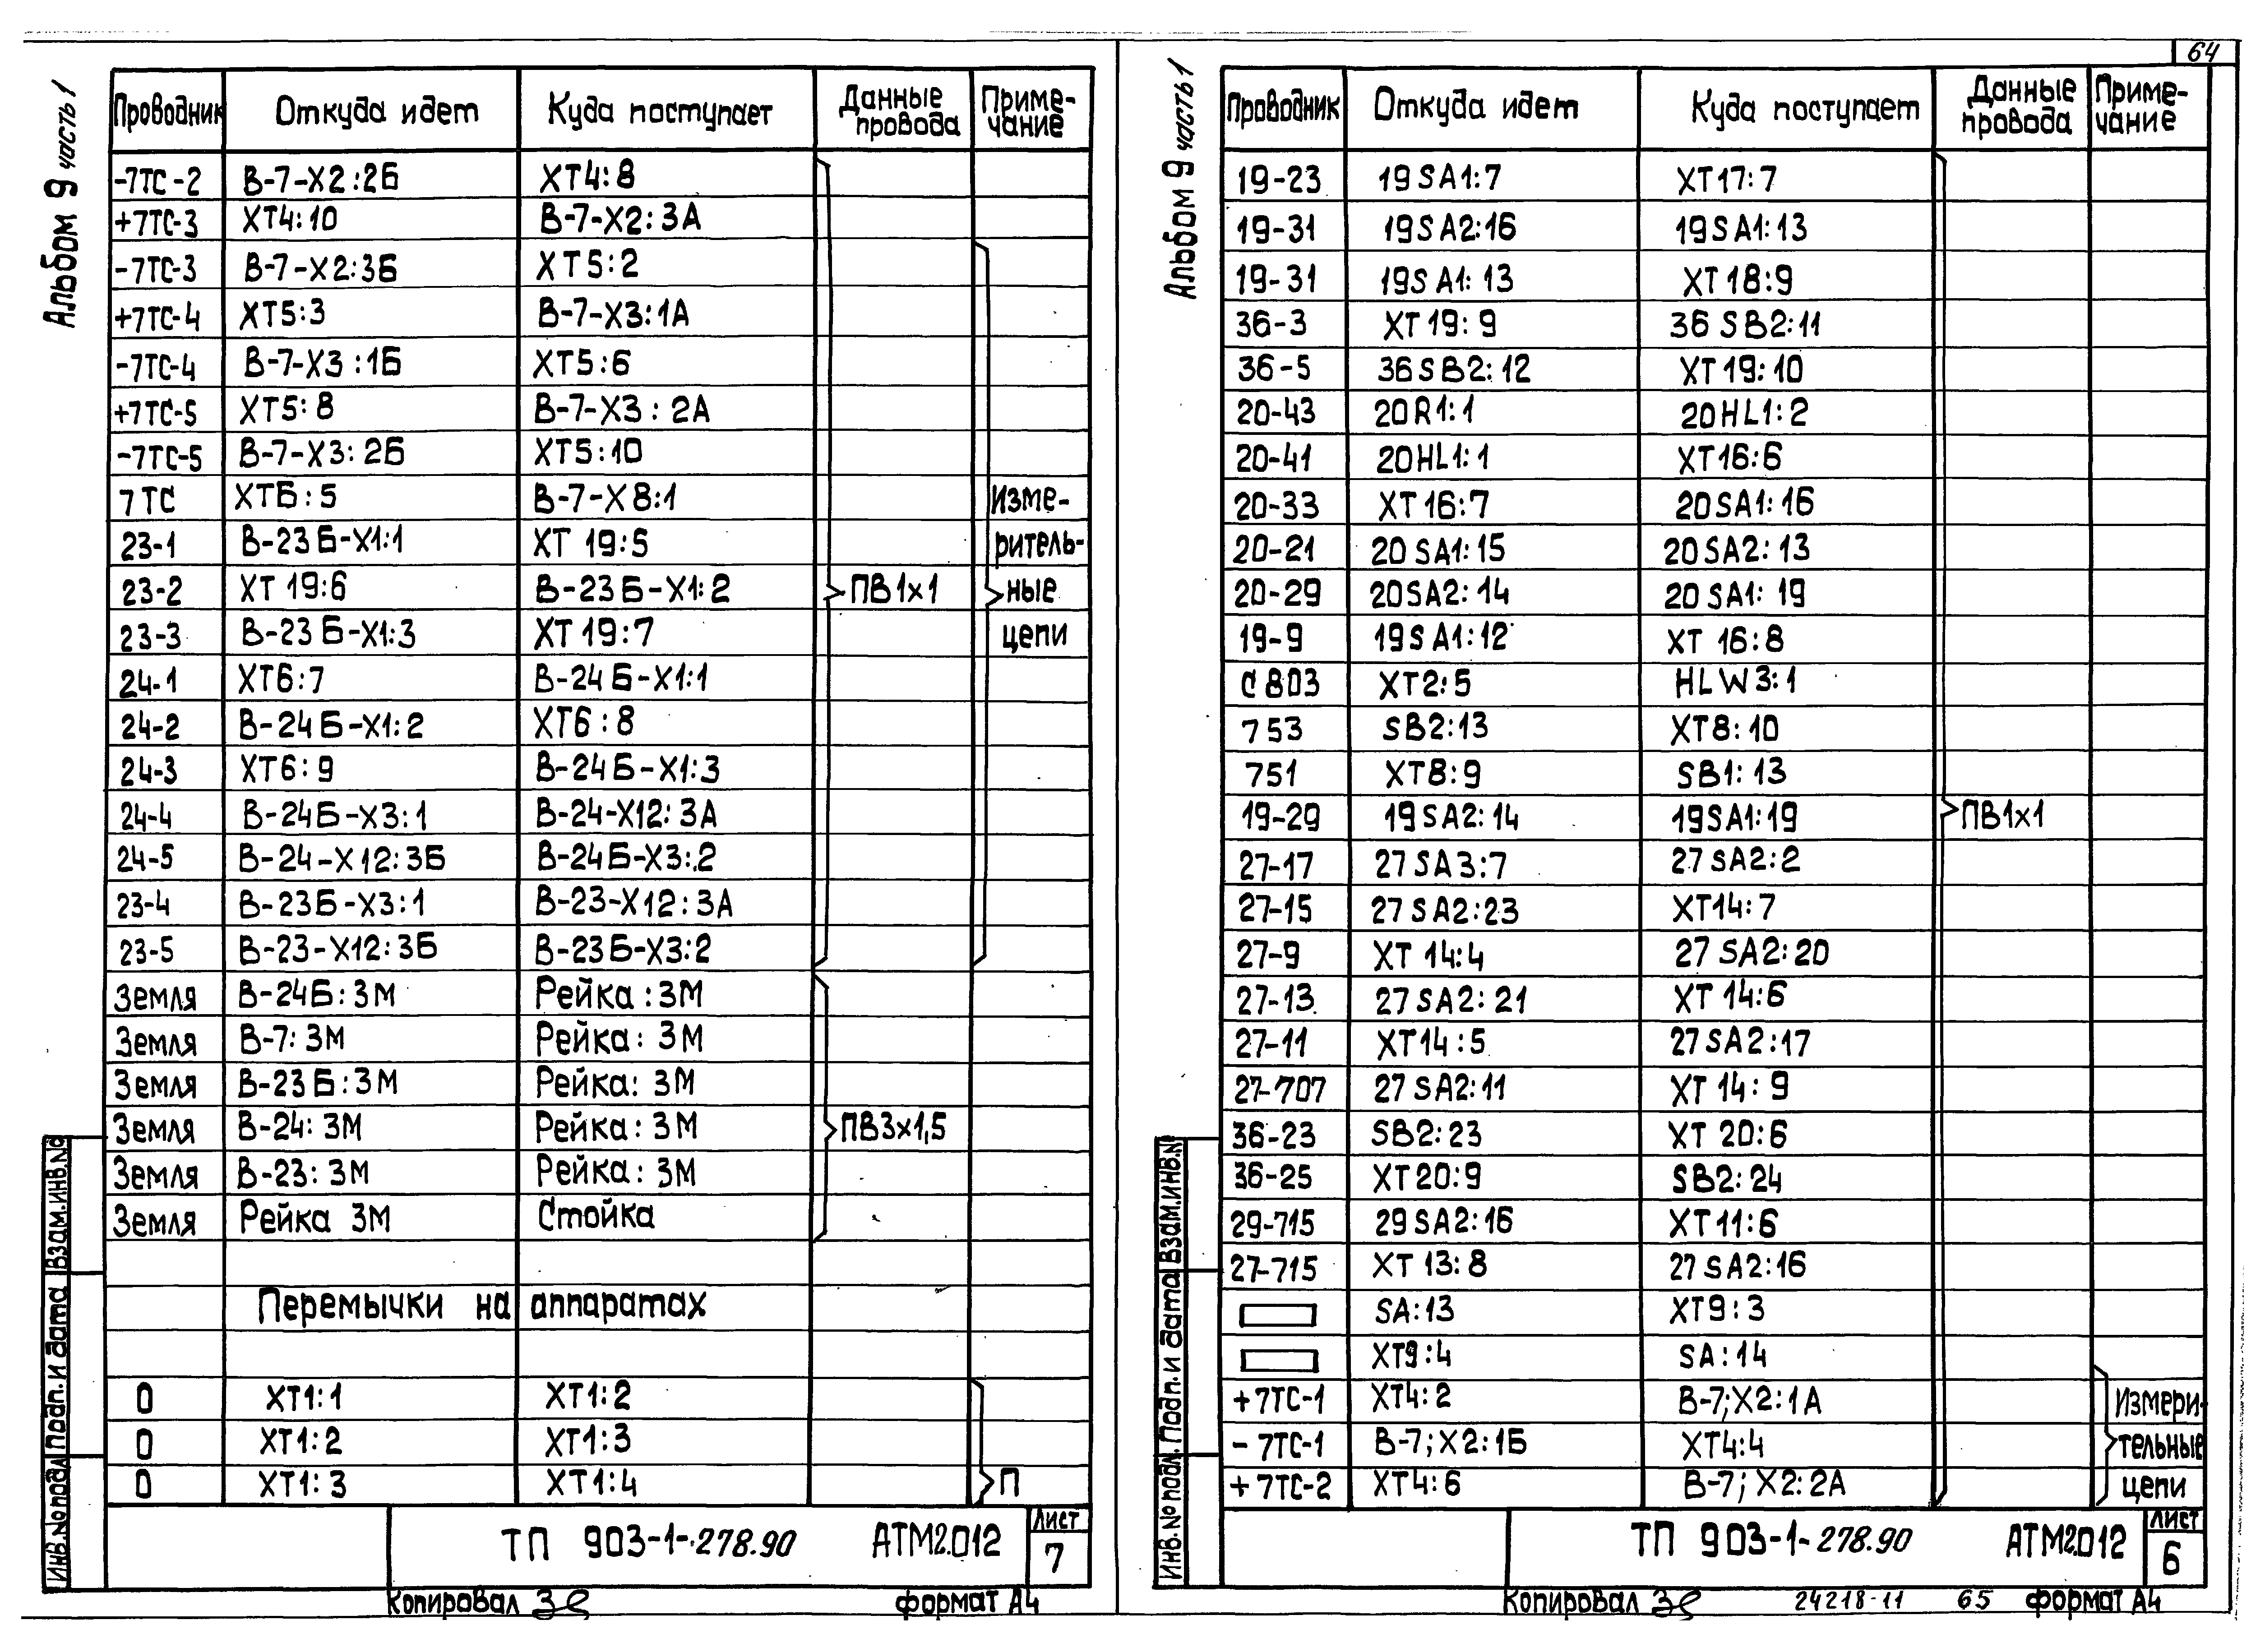 64
Альбом 9 часть 1
Проводник Откуда идет Куда поступает Данные провода Приме-чание
-7ТС-2 В-7-Х2:2Б ХТ4:8
+7ТС-3 ХТ4:10 В-7-Х2:3А
-7ТС-3 В-7-Х2:3Б ХТ5:2
+7ТС-4 ХТ5:3 В-7-Х3:1А
-7ТС-4 В-7-Х3:1Б ХТ5:6
+7ТС-5 ХТ5:8 В-7-Х3:2А
-7ТС-5 В-7-Х3:2Б ХТ5:10
7ТС ХТ6:5 В-7-Х8:1 Изме-
23-1 В-23Б-Х1:1 ХТ19:5 ритель-
23-2 ХТ19:6 В-23Б-Х1:2 ПВ1х1 ные
23-3 В-23Б-Х1:3 ХТ19:7 цепи
24-1 ХТ6:7 В-24Б-Х1:1
24-2 В-24Б-Х1:2 ХТ6:8
24-3 ХТ6:9 В-24Б-Х1:3
24-4 В-24Б-Х3:1 В-24-Х12:3А
24-5 В-24-Х12:3Б В-24Б-Х3:2
23-4 В-23Б-Х3:1 В-23-Х12:3А
23-5 В-23-Х12:3Б В-23Б-Х3:2
Земля В-24Б:ЗМ Рейка:ЗМ
Земля В-7:ЗМ Рейка:ЗМ
Земля В-23Б:ЗМ Рейка:ЗМ
Земля В-24:ЗМ Рейка:ЗМ ПВ3х1,5
Земля В-23:ЗМ Рейка:ЗМ
Земля Рейка ЗМ Стойка
Перемычки на аппаратах
0 ХТ1:1 ХТ1:2
0 ХТ1:2 ХТ1:3
0 ХТ1:3 ХТ1:4 П
Инв.№подл. Подп. и дата Взам.инв.№
ТП 903-1-278.90 АТМ2.012 Лист 7
Копировал формат А4
Альбом 9 часть 1
Проводник Откуда идет Куда поступает Данные провода Приме-чание
19-23 19SA1:7 ХТ17:7
19-31 19SA2:16 19SA1:13
19-31 19SA1:13 ХТ18:9
36-3 ХТ19:9 36SB2:11
36-5 36SB2:12 ХТ19:10
20-43 20R1:1 20HL1:2
20-41 20HL1:1 ХТ16:6
20-33 ХТ16:7 20SA1:16
20-21 20SA1:15 20SA2:13
20-29 20SA2:14 20SA1:19
19-9 19SA1:12 ХТ16:8
С803 ХТ2:5 HLW3:1
753 SB2:13 ХТ8:10
751 ХТ8:9 SB1:13
19-29 19SA2:14 19SA1:19 ПВ1х1
27-17 27SA3:7 27SA2:2
27-15 27SA2:23 ХТ14:7
27-9 ХТ14:4 27SA2:20
27-13 27SA2:21 ХТ14:6
27-11 ХТ14:5 27SA2:17
27-707 27SA2:11 ХТ14:9
36-23 SB2:23 ХТ20:6
36-25 ХТ20:9 SB2:24
29-715 29SA2:16 ХТ11:6
27-715 ХТ13:8 27SA2:16
SA:13 ХТ9:3
ХТ9:4 SA:14
+7ТС-1 ХТ4:2 В-7;Х2:1А Измери-
-7ТС-1 В-7;Х2:1Б ХТ4:4 тельные
+7ТС-2 ХТ4:6 В-7;Х2:2А цепи
Инв.№подл. Подп. и дата Взам.инв.№
ТП 903-1-278.90 АТМ2.012 Лист 6
Копировал 24218-11 65 формат А4